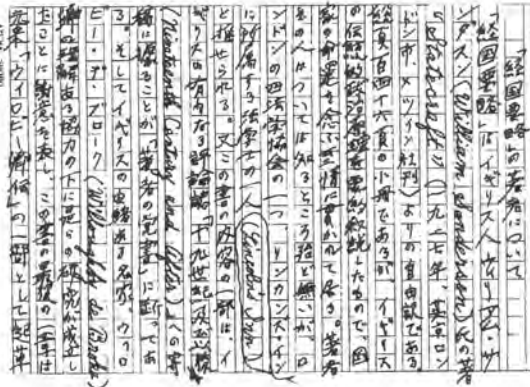 「経国要略」の著者について
「経国要略」はイギリス人ウィリアム・サ
ンダスン(William Sanderson)氏の著
"Statecraft"(一九二七年、英京ロン
ドン市、メツウイン社刊)よりの自由訳である。
総頁百四十六頁の小冊であるが、イギリス
の伝統的政治原理を要約叙述したもので、国
家の命運を念ふ至情に貫かれて居る。著者
その人については知るところ殆ど無いが、ロ
ンドンの四法学協会の一つ、リンカンス・イン
に所属する法学士の一人(Lincoln's Inn)
と推せられる。又この書の内容の一部は、イ
ギリスの有名なる評論誌「十九世紀及以後」
(Nineteenth Century and After)への寄
稿に係ることが「著者の覚書」に断つてあ
る。そしてイギリスの由緒ある名家、ウィロ
ビー・デ・ブローク(Willoughby de Broke)
卿の理解ある協力の下に是らの研究が成立し
たことに謝意を表し、この書の最後の一章は
元来「ウイロビー卿伝」の一関として起草